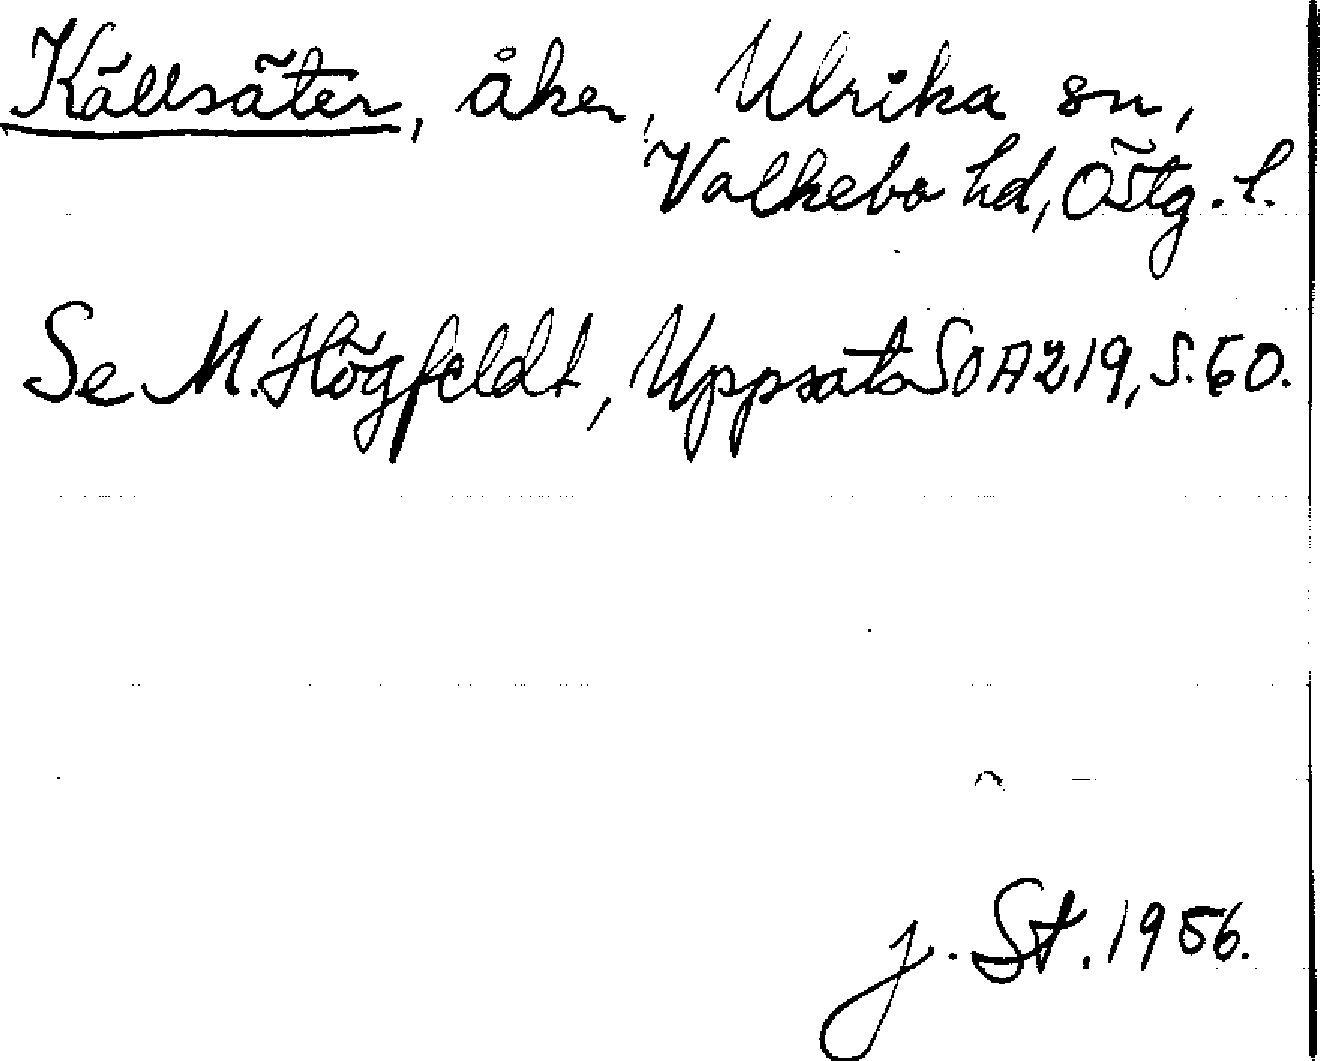 Källsäter, åker, Ulrika sn,
Valkebo hd, Östg. l.
Se M. Högfeldt, Uppsats SOA 219, s. 60.
J. St. 1956.